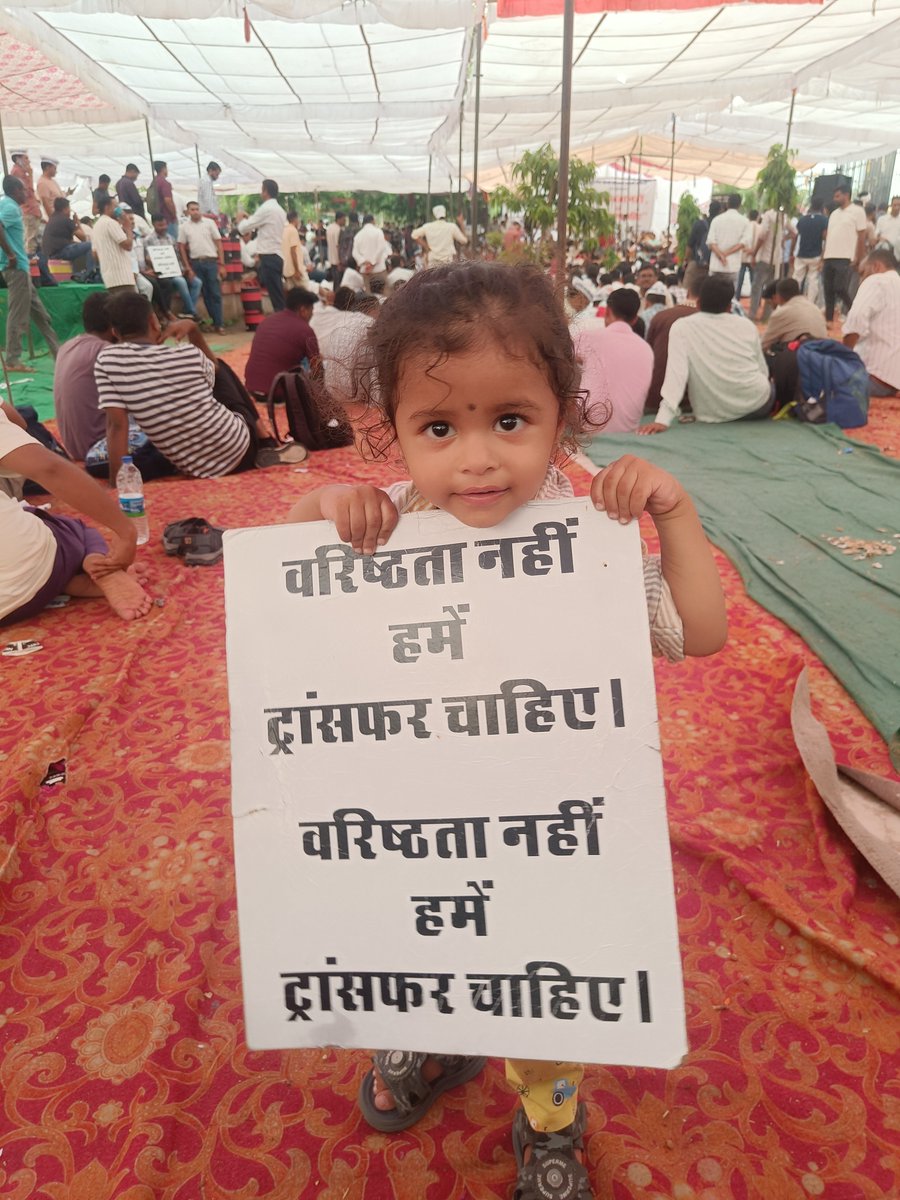 वरिष्ठता नहीं
हमें
ट्रांसफर चाहिए।
वरिष्ठता नहीं
हमें
ट्रांसफर चाहिए।
SUPERME